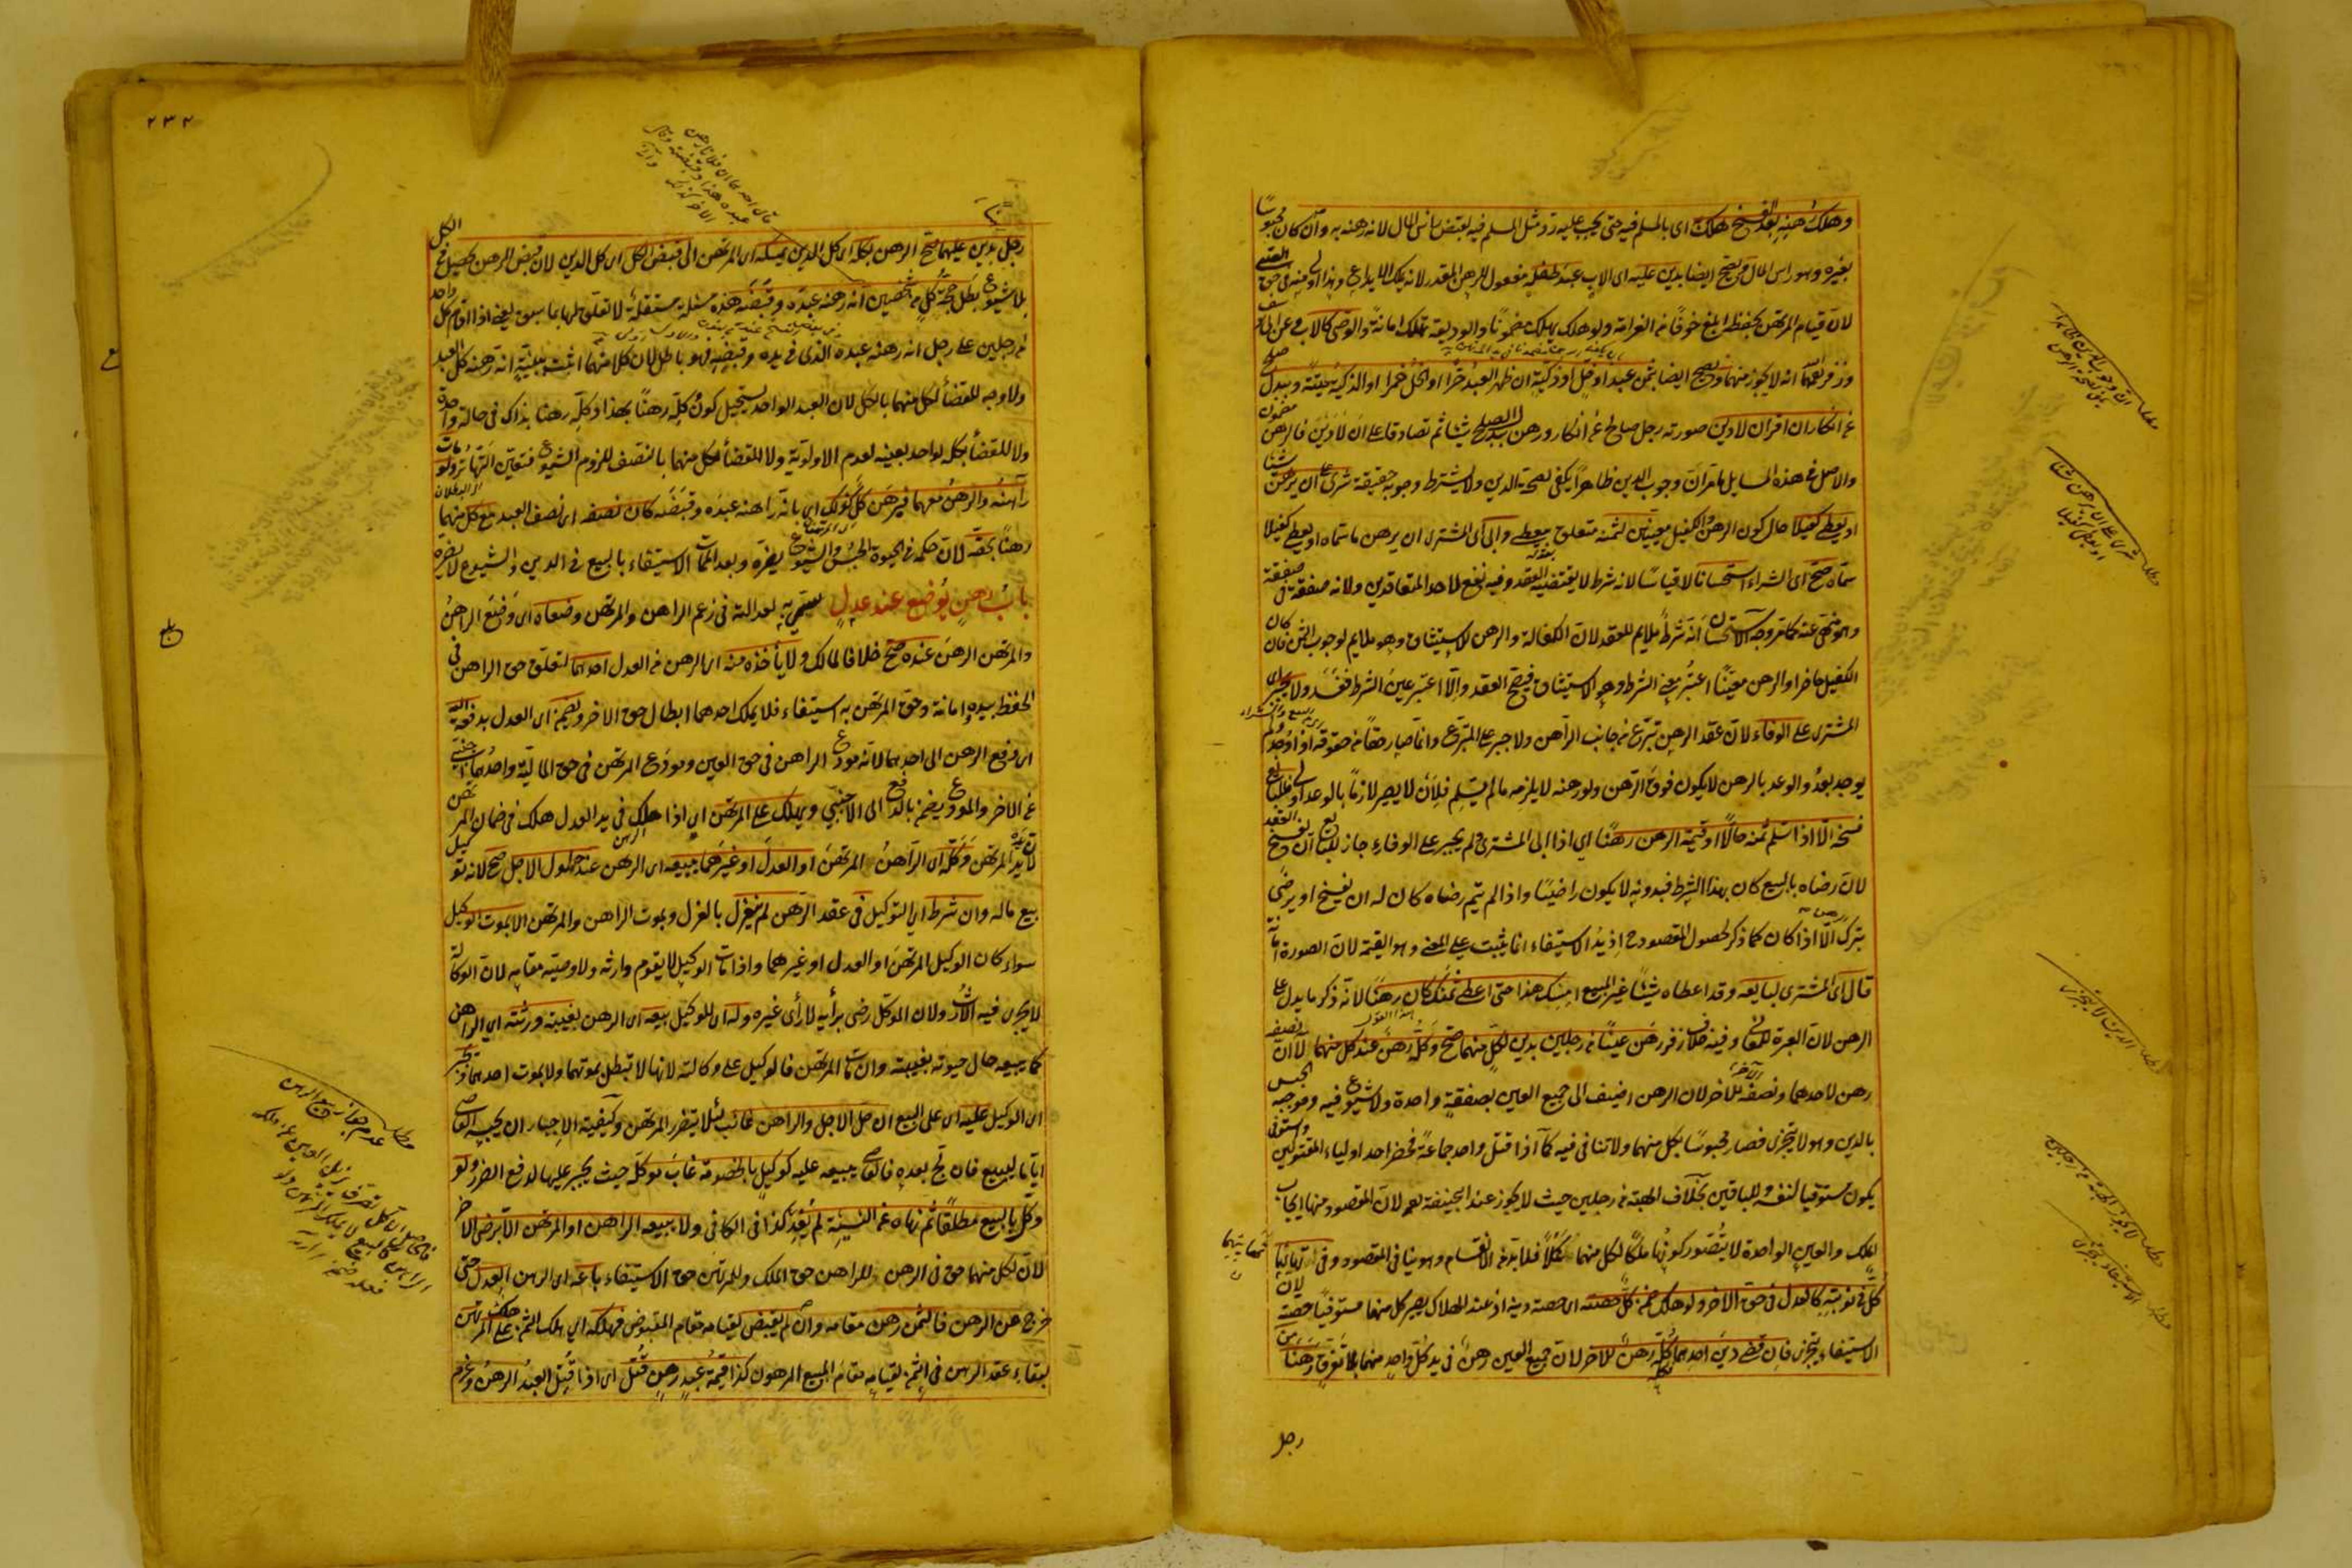 وهلك رهنه بعد الفسخ هلك به اى بالمسلم فيه حتى يجب عليه رد مثل المسلم فيه لقبض راس المال لانه رهنه به وان كان محبوسا
بغيره وهو راس المال ويصح ايضا بدين عليه اى الاب عبد طفله مفعول للرهن المقدر لانه يملك الايداع وهذا اولى منه فى حق الصبى
لان قيام المرتهن بحفظه ابلغ خوفا من الغرامة ولو هلك يهلك مضمونا والوديعة تهلك امانة والوصى كالاب وعن ابى يوسف
وزفر انه لا يجوز منهما ويصح ايضا بثمن عبد او خل او ذكية ان ظهر العبد حرا او الخل خمرا او الذكية ميتة وببدل صلح
عن انكار ان اقر ان لا دين صورته رجل صالح عن انكار ورهن ببدل الصلح شيئا ثم تصادقا على ان لا دين فالرهن مضمون
والاصل فى هذه المسايل ما مر ان وجوب الدين ظاهرا يكفى لصحة الدين ولا يشترط وجوبه حقيقة شرى على ان يرهن شيئا
او يعطى كفيلا حال كون الرهن والكفيل معينين لثمنه متعلق بيعطى وابى اى المشترى ان يرهن ما سماه او يعطى كفيلا
سماه صح اى الشراء استحسانا لا قياسا لانه شرط لا يقتضيه العقد وفيه نفع لاحد المتعاقدين ولانه صفقة فى صفقة
وهو منهى عنه كما مر وجه الاستحسان انه شرط ملايم للعقد لان الكفالة والرهن للاستيثاق وهو ملايم لوجوب الثمن فان كان
الكفيل حاضرا والرهن معينا اعتبر معنى الشرط وهو الاستيثاق فيصح العقد والا اعتبر عين الشرط ففسد ولا يجبر اى
المشترى على الوفاء لان عقد الرهن تبرع من جانب الراهن ولا جبر على المتبرع وانما صار حقا من حقوقه اذا وجد ولم
يوجد بعد والوعد بالرهن لا يكون فوق الرهن ولو رهنه لا يلزمه ما لم يسلم فلان لا يصير لازما بالوعد اولى وللبائع
فسخه الا اذا سلم ثمنه حالا او قيمة الرهن رهنا اى اذا ابى المشترى ولم يجبر على الوفاء جاز للبائع ان يفسخ العقد
لان رضاه بالبيع كان بهذا الشرط فبدونه لا يكون راضيا واذا لم يتم رضاه كان له ان يفسخ او يرضى
بترك الرهن الا اذا كان كما ذكر لحصول المقصود ح اذ يد الاستيفاء انما يثبت على المعنى وهو القيمة لان الصورة امانة
قال اى المشترى لبايعه وقد اعطاه شيئا غير المبيع امسك هذا حتى اعطى ثمنك كان رهنا لانه ذكر ما يدل على
الرهن لان العبرة للمعانى وفيه خلاف زفر رهن عينا من رجلين بدين لكل منهما صح وكله رهن عند كل منهما لا ان نصفه
رهن لاحدهما ونصفه للاخر لان الرهن اضيف الى جميع العين بصفقة واحدة ولا شيوع فيه وموجبه الحبس
بالدين وهو لا يتجزى فصار محبوسا بكل منهما ولا تنافى فيه كما اذا قتل واحد جماعة فحضر احد اولياء المقتولين واستوفى
يكون مستوفيا لنفسه وللباقين بخلاف الهبة من رجلين حيث لا يجوز عند ابى حنيفة رحمه لان المقصود منها ايجاب
الملك والعين الواحدة لا يتصور كونها ملكا لكل منهما كملا فلا بد من الانقسام وهو ينافى المقصود وفى تهايئهما
كل فى نوبته كالعدل فى حق الاخر ولو هلك ضمن كل حصته اى حصة دينه اذ عند الهلاك يصير كل منهما مستوفيا حصته لان
الاستيفاء يتجزى فان قضى دين احدهما فكله رهن للاخر لان جميع العين رهن فى يد كل واحد منهما بلا تفرق رهنا من
رجل
مطلب
مطلب شرى على ان يرهن شيئا او يعطى كفيلا
مطلب الدين لا يتجزى
مطلب لا يجوز الهبة من رجلين
مطلب الاستيفاء يتجزى
٢٣٢
رجل بدين عليهما صح الرهن بكله اى كل الدين يمسكه اى المرتهن الى قبض الكل اى كل الدين لان قبض الرهن يحصل فى الكل
بلا شيوع بطل حجة كل من شخصين انه رهنه عبده وقبضه هذه مسئلة مستقلة لا تعلق لها بما سبق يعنى اذا اقام كل واحد
من رجلين على رجل انه رهنه عبده الذى فى يده وقبضه فهو باطل لان كلا منهما اثبت ببينته انه رهنه كل العبد
ولا وجه للقضأ لكل منهما بالكل لان العبد الواحد يستحيل كون كله رهنا بهذا وكله رهنا بذاك فى حالة واحدة
ولا للقضأ بكله لواحد بعينه لعدم الاولوية ولا للقضأ لكل منهما بالنصف للزوم الشيوع فتعين التهاتر ولو مات
راهنه والرهن معهما فبرهن كل كذلك اى بانه راهنه عبده وقبضه كان نصفه اى نصف العبد مع كل منهما
رهنا بحقه لان حكمه فى الحيوة الحبس والشيوع يضره وبعد الممات الاستيفاء بالبيع فى الدين والشيوع لا يضره
باب رهن يوضع عند عدل سمى به لعدالته فى زعم الراهن والمرتهن وضعاه اى وضع الراهن
والمرتهن الرهن عنده صح خلافا لمالك ولا ياخذه منه اى الرهن من العدل احدهما لتعلق حق الراهن فى
الحفظ بيده امانة وحق المرتهن به استيفاء فلا يملك احدهما ابطال حق الاخر ويضمن اى العدل بدفعه اليه
اى دفع الرهن الى احدهما لانه مودع الراهن فى حق العين ومودع المرتهن فى حق المالية واحدهما اجنبى
عن الاخر والمودع يضمن بالدفع الى الاجنبى ويهلك على المرتهن اى اذا هلك فى يد العدل هلك فى ضمان المرتهن
لان يده يد المرتهن وكله اى الراهن المرتهن او العدل او غيرهما ببيعه اى الرهن عند حلول الاجل صح لانه توكيل
بيع ماله وان شرط اى التوكيل فى عقد الرهن لم ينعزل بالعزل وبموت الراهن والمرتهن الا بموت الوكيل
سواء كان الوكيل المرتهن او العدل او غيرهما واذا مات الوكيل لا يقوم وارثه ولا وصيه مقامه لان الوكالة
لا يجرى فيه الارث ولان الموكل رضى برأيه لا رأى غيره وله اى للوكيل بيعه اى الرهن بغيبة ورثته اى الراهن
كما يبيعه حال حيوته بغيبته وان مات المرتهن فالوكيل على وكالته لانها لا تبطل بموتهما ولا بموت احدهما ويجبر
اى الوكيل عليه اى على البيع ان حل الاجل والراهن غائب لئلا يتضرر المرتهن وكيفية الاجبار ان يحبسه القاضى
اياما ليبيع فان لج بعده فالقاضى يبيعه عليه كوكيل بالخصومة غاب موكله حيث يجبر عليها لدفع الضرر ولو
وكل بالبيع مطلقا ثم نهاه عن النسيئة لم يفد كذا فى الكافى ولا يبيعه الراهن او المرتهن الا برضى الاخر
لان لكل منهما حق فى الرهن للراهن حق الملك وللمرتهن حق الاستيفاء باعه اى الرهن العدل حتى
خرج عن الرهن فالثمن رهن مقامه وان لم يقبض لقيامه مقام المقبوض فهلكه اى هلك الثمن على المرتهن
لبقاء عقد الرهن فى الثمن لقيامه مقام المبيع المرهون كذا قيمة عبد رهن قتل اى اذا قتل العبد الرهن وغرم
بلغ
مطلب عدم جواز بيع الرهن